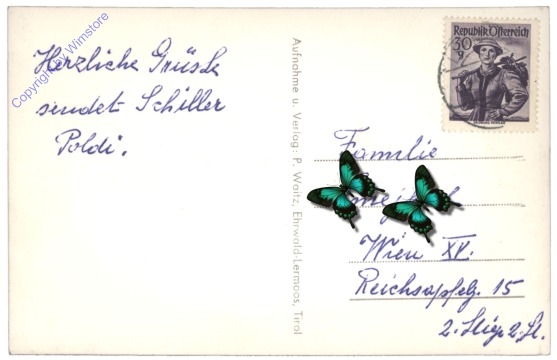 Herzliche Grüsse
sendet Schiller
Poldi.
Copyright by Wimstore
Aufnahme u. Verlag: P. Waitz, Ehrwald-Lermoos, Tirol
Republik Österreich
30 g
Familie
Wien XV.
Reichsapfelg. 15
2. Stiege 2. St.